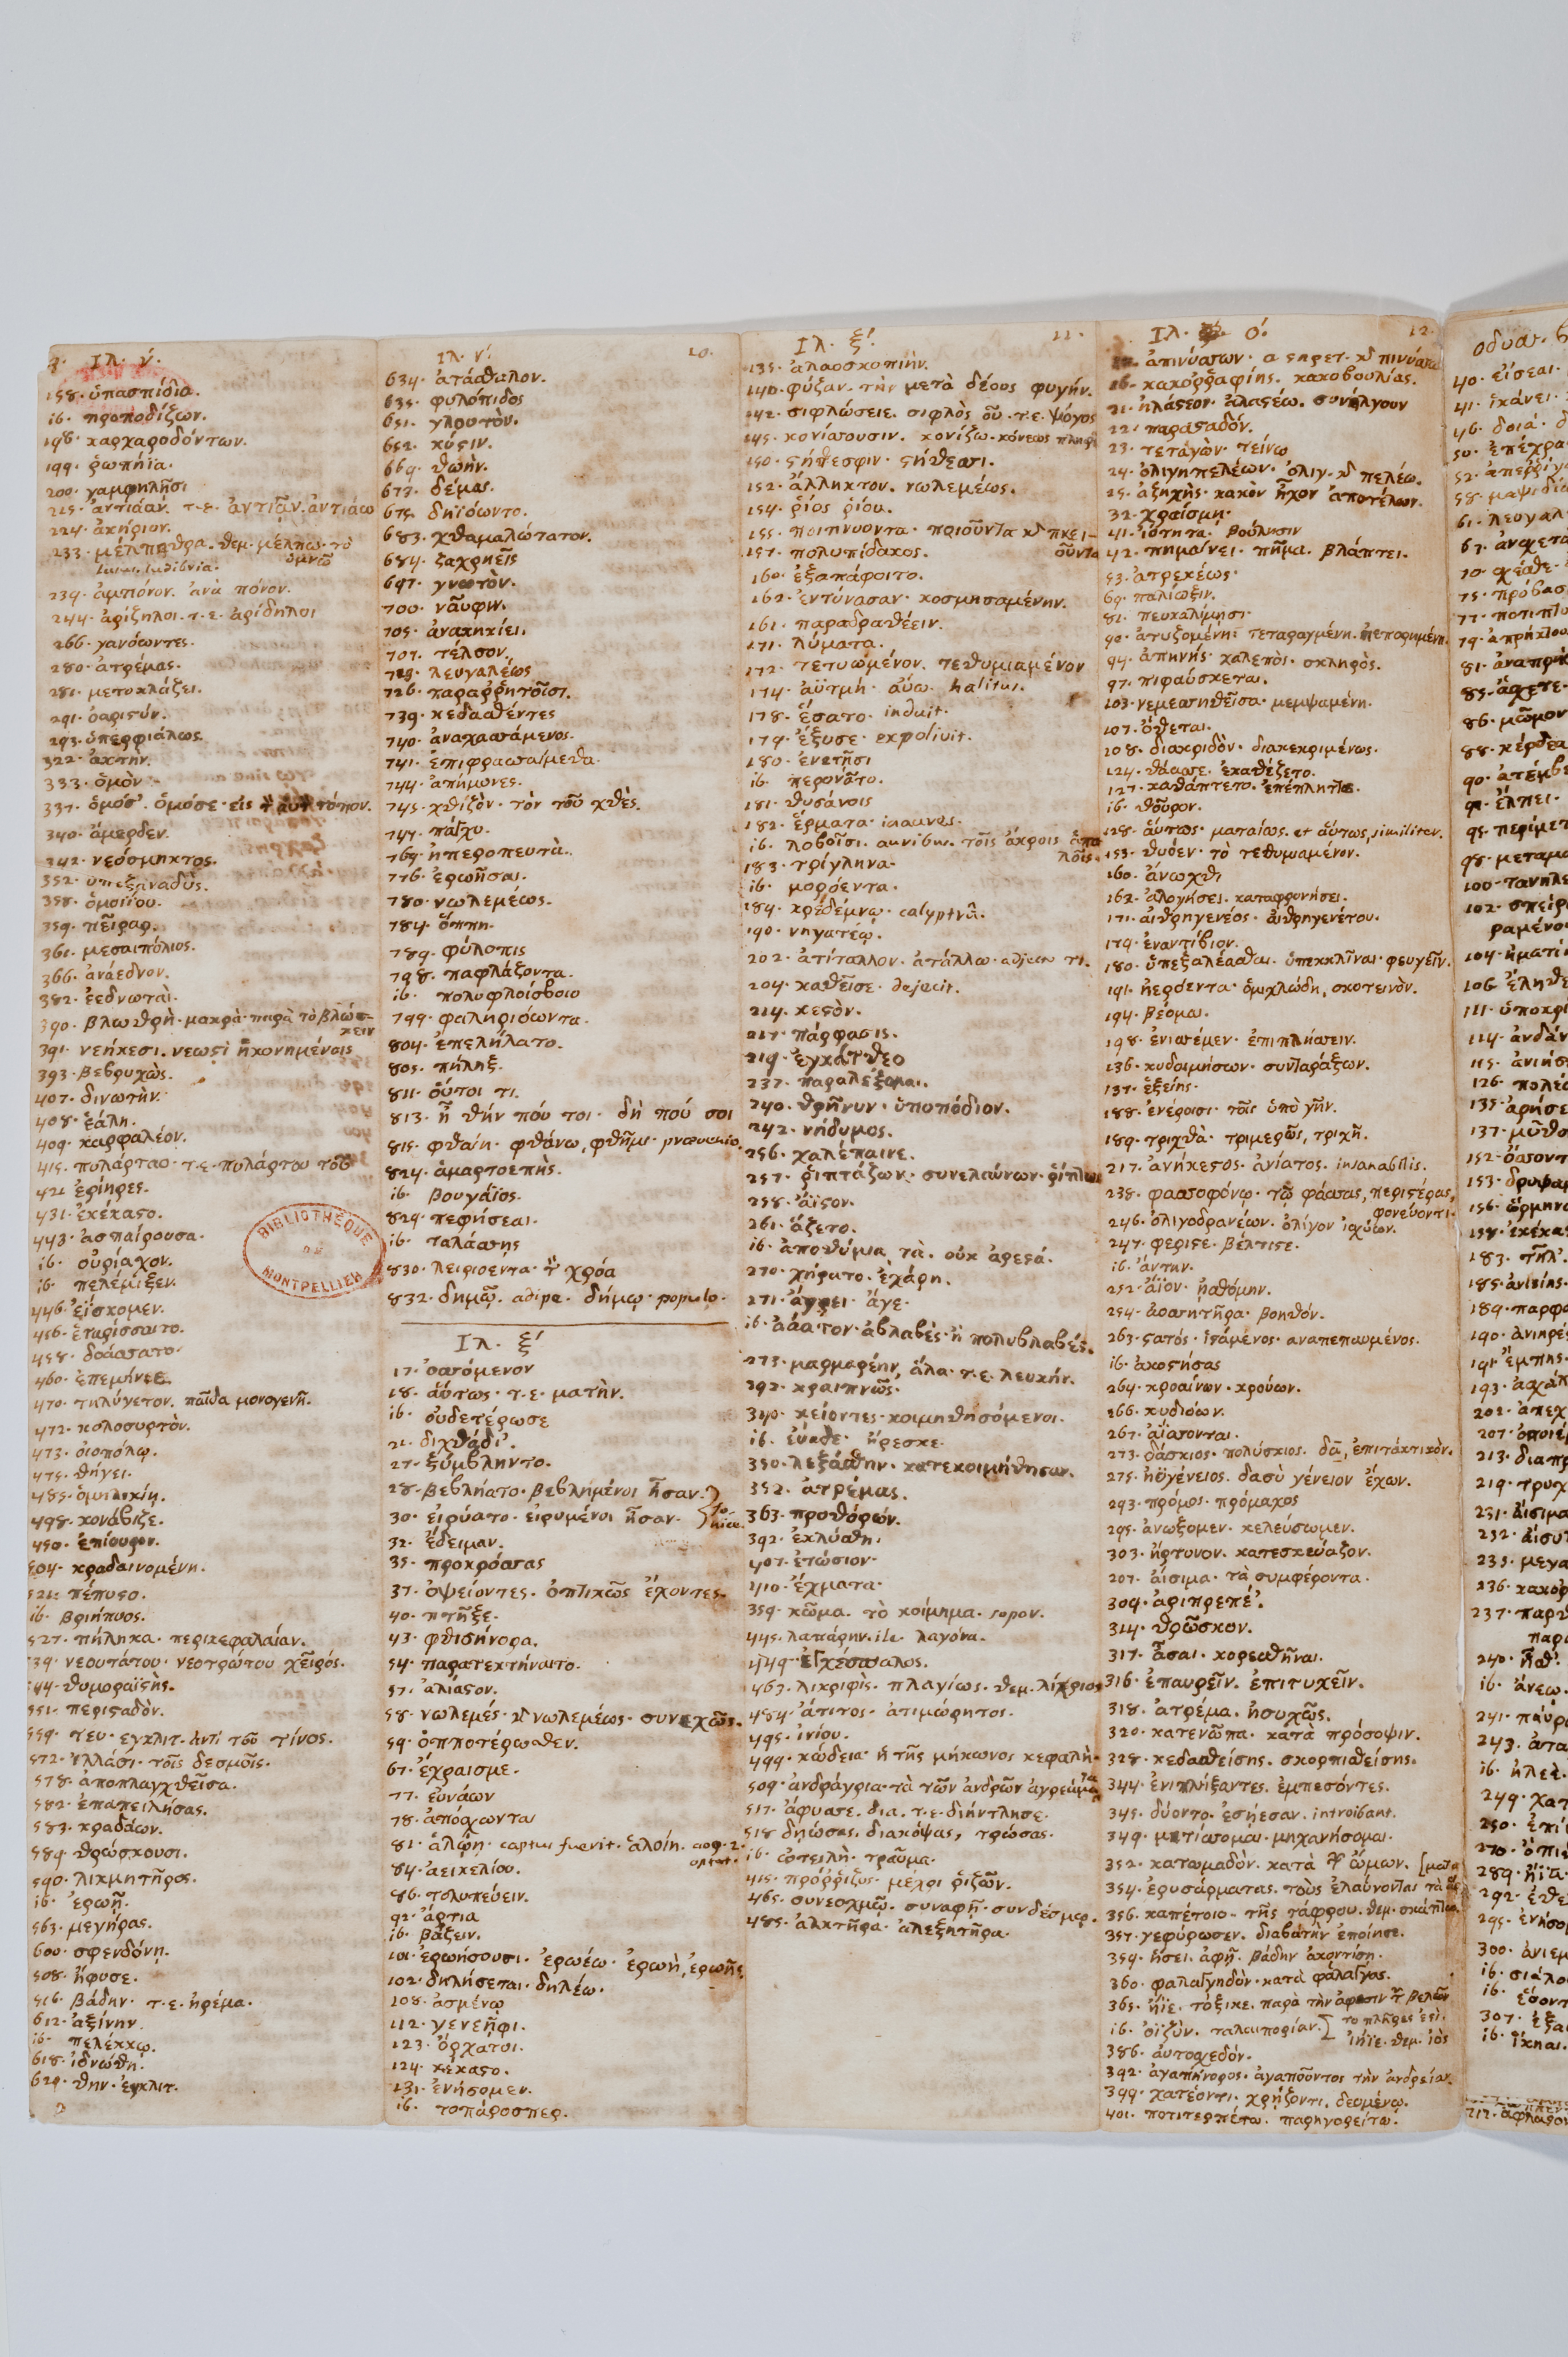 Ιλ. ν΄.
158. ὑπασπίδια.
ib. προποδίζων.
198. καρχαροδόντων.
199. ῥωπήϊα.
200. γαμφηλῇσι
215. ἀντιάαν. τ.ε. ἀντιᾶν. ἀντιάω
224. ἀκήριον.
233. μέλπηθρα. θεμ. μέλπω. τὸ
ὑμνῶ
239. ἀμπόνον. ἀνὰ πόνον.
244. ἀρίζηλοι. τ.ε. ἀρίδηλοι
266. γανόωντες.
280. ἀτρέμας.
281. μετοκλάζει.
291. ὀαριστύν.
293. ὑπερφιάλως.
322. ἀκτήν.
333. ὁμὸν
337. ὁμόσ'. ὁμόσε. εἰς τόπον.
340. ἄμερδεν.
342. νεόσμηκτος.
352. ὑπεξαναδὺς.
358. ὁμοιΐου.
359. πεῖραρ.
361. μεσαιπόλιος.
366. ἀνάεδνον.
382. ἐεδνωταὶ.
390. βλωθρὴ. μακρὰ. παρὰ τὸ βλώσ-
κειν
391. νεήκεσι. νεωστὶ ἠκονημέναις
393. βεβρυχὼς.
407. δινωτὴν.
408. ἐάλη.
409. καρφαλέον.
415. πυλάρταο. τ.ε. πυλάρτου τοῦ
421. ἐρίηρες.
431. ἐκέκαστο.
443. ἀσπαίρουσα.
ib. οὐρίαχον.
ib. πελέμιξεν.
446. ἐΐσκομεν.
456. ἑταρίσσαιτο.
458. δοάσσατο.
460. ἐπεμήνιε.
470. τηλύγετον. παῖδα μονογενῆ.
472. κολοσυρτὸν.
473. οἰοπόλῳ.
475. θήγει.
485. ὁμηλικίη.
498. κονάβιζε.
450. ἐπίουρον.
504. κραδαινομένη.
521. πέπυστο.
ib. βριήπυος.
527. πήληκα. περικεφαλαίαν.
539. νεουτάτου. νεοτρώτου χειρός.
544. θυμοραϊστὴς.
551. περισταδὸν.
559. τευ. εγκλιτ. ἀντὶ τοῦ τίνος.
572. ἰλλάσι. τοῖς δεσμοῖς.
578. ἀποπλαγχθεῖσα.
582. ἐπαπειλήσας.
583. κραδάων.
589. θρώσκουσι.
590. λικμητῆρος.
ib. ἐρωῇ.
563. μεγήρας.
600. σφενδόνη.
508. ἤφυσε.
516. βάδην. τ.ε. ἠρέμα.
612. ἀξίνην.
ib. πελέκκῳ.
618. ἰδνώθη.
620. θην. ἐγκλιτ.
Ιλ. ν΄
10.
634. ἀτάσθαλον.
635. φυλόπιδος
651. γλουτὸν.
652. κύστιν.
669. θωὴν.
673. δέμας.
675. δηϊόωντο.
683. χθαμαλώτατον.
684. ζαχρηεῖς
697. γνωτὸν.
700. ναῦφιν.
705. ἀνακηκίει.
707. τέλσον.
723. λευγαλέως
726. παραῤῥητοῖσι.
739. κεδασθέντες
740. ἀναχασσάμενος.
741. ἐπιφρασσαίμεθα.
744. ἀπήμονες.
745. χθιζὸν. τὸν τοῦ χθὲς.
747. πάγχυ.
769. ἠπεροπευτὰ.
776. ἐρωῆσαι.
780. νωλεμέως.
784. ὅππη.
789. φύλοπις
798. παφλάζοντα.
ib. πολυφλοίσβοιο
799. φαληριόωντα.
804. ἐπελήλατο.
805. πήληξ.
811. οὔτοι τι.
813. ἦ θήν πού τοι. δή πού σοι
815. φθαίη. φθάνω, φθῆμι. prævenio.
824. ἁμαρτοεπὴς.
ib. βουγάϊος.
829. πεφήσεαι.
ib. ταλάσσῃς
830. λειριόεντα. χρόα
832. δημῷ. adipe. δήμῳ. populo.
Ιλ. ξ΄
17. ὀσσόμενον
18. αὔτως. τ.ε. ματὴν.
ib. οὐδετέρωσε
21. διχθάδι'.
27. ξύμβληντο.
28. βεβλήατο. βεβλημένοι ἦσαν.
30. εἰρύατο. εἰρυμένοι ἦσαν. Ionice.
32. ἔδειμαν.
35. προκρόσσας
37. ὀψείοντες. ὀπτικῶς ἔχοντες.
40. πτῆξε.
43. φθισήνορα.
54. παρατεκτήναιτο.
57. ἀλίαστον.
58. νωλεμές. νωλεμέως. συνεχῶς.
59. ὁπποτέρωθεν.
67. ἔχραισμε.
77. εὐνάων
78. ἀπόσχωνται
81. ἁλῴη. captus fuerit. ἁλοίη. aor. 2.
optat.
84. ἀεικελίου.
86. τολυπεύειν.
92. ἄρτια
ib. βάζειν.
101. ἐρωήσουσι. ἐρωέω. ἐρωὴ, ἐρωῆς.
102. δηλήσεται. δηλέω.
108. ἀσμένῳ
112. γενεῆφι.
123. ὄρχατοι.
124. κέκαστο.
131. ἐνήσομεν.
ib. τοπάροσπερ.
Ιλ. ξ΄.
11.
135. ἀλαοσκοπιὴν.
140. φύζαν. τὴν μετὰ δέους φυγήν.
142. σιφλώσειε. σιφλὸς οῦ. τ.ε. ψόγος
145. κονίσουσιν. κονίζω. κόνεως
150. στήθεσφιν. στήθεσσι.
152. ἄλληκτον. νωλεμέως.
154. ῥίος ῥίου.
155. ποιπνύοντα.
157. πολυπίδακος.
160. ἐξαπάφοιτο.
162. ἐντύνασαν. κοσμησαμένην.
161. παραδραθέειν.
171. λύματα.
172. τετυωμένον. τεθυμιαμένον
174. ἀϋτμή. αὔω. halitus.
178. ἕσατο. induit.
179. ἔξυσε. expolivit.
180. ἐνετῇσι
ib. περονᾶτο.
181. θυσάνοις
182. ἕρματα. inaures.
ib. λοβοῖσι. auribus. τοῖς ἄκροις ἁπα
λοῖς.
183. τρίγληνα.
ib. μορόεντα.
184. κρηδέμνῳ. calyptrâ.
190. νηγατέῳ.
202. ἀτίταλλον. ἀτάλλω.
204. καθεῖσε. dejecit.
214. κεστὸν.
217. πάρφασις.
219. ἐγκάτθεο
237. παραλέξομαι.
240. θρῆνυν. ὑποπόδιον.
242. νήδυμος.
256. χαλέπαινε.
257. ῥιπτάζων. συνελαύνων.
258. ἄϊστον.
261. ἅζετο.
ib. ἀποθύμια τὰ. οὐκ ἀρεστά.
270. χήρατο. ἐχάρη.
271. ἄγρει. ἄγε.
ib. ἀάατον. ἀβλαβὲς. ἢ πολυβλαβές.
273. μαρμαρέην, ἅλα. τ.ε. λευκήν.
292. κραιπνῶς.
340. κείοντες. κοιμηθησόμενοι.
ib. εὔαδε. ἤρεσκε.
350. λεξάσθην. κατεκοιμήθησαν.
352. ἀτρέμας.
363. προθορών.
392. ἐκλύσθη.
407. ἐτώσιον.
410. ἔχματα.
359. κῶμα. τὸ κοίμημα. sopor.
445. λαπάρην. ile. λαγόνα.
449. ἐγχέσπαλος.
463. λικριφὶς. πλαγίως. θεμ. λίκριος
484. ἄτιτος. ἀτιμώρητος.
495. ἰνίου.
499. κώδεια. ἡ τῆς μήκωνος κεφαλή.
509. ἀνδράγρια. τὰ τῶν ἀνδρῶν
517. ἄφυσσε. δια. τ.ε. διήντλησε.
518 δῃώσας. διακόψας, τρώσας.
ib. ὠτειλὴ. τραῦμα.
415. πρόῤῥιζος. μέχρι ῥιζῶν.
465. συνεοχμῷ. συναφῇ. συνδέσμῳ.
485. ἀλκτῆρα. ἀλεξητῆρα.
Ιλ. ο΄.
12.
ἀπινύσσων. α στερητ.
16. κακοῤῥαφίης. κακοβουλίας.
21. ἠλάστεον. ἀλαστέω. συνήλγουν
22. παρασταδόν.
23. τεταγὼν. τείνω
24. ὀλιγηπελέων. ὀλιγ. πελέω.
25. ἀζηχὴς. κακὸν ἦχον ἀποτέλων.
32. χραίσμῃ.
41. ἰότητα. βούλησιν
42. πημαίνει. πῆμα. βλάπτει.
53. ἀτρεκέως.
69. παλίωξιν.
81. πευκαλίμῃσι.
90. ἀτυζομένη. τεταραγμένη.
94. ἀπηνής. χαλεπὸς. σκληρὸς.
97. πιφαύσκεται.
103. νεμεσσηθεῖσα. μεμψαμένη.
107. ὄθεται.
108. διακριδὸν. διακεκριμένως.
124. θάασσε. ἐκαθέζετο.
127. καθάπτετο. ἐπέπληττε.
ib. θοῦρον.
128. αὔτως. ματαίως. et αὕτως, similiter.
153. θυόεν. τὸ τεθυμιαμένον.
160. ἄνωχθι
162. ἀλογήσει. καταφρονήσει.
171. αἰθρηγενέος. αἰθρηγενέτου.
179. ἐναντίβιον.
180. ὑπεξαλέασθαι. ὑπεκκλῖναι. φευγεῖν.
191. ἠερόεντα. ὁμιχλώδη, σκοτεινὸν.
194. βέομαι.
198. ἐνισσέμεν. ἐπιπλήσσειν.
136. κυδοιμήσων. συνταράξων.
137. ἑξείης.
188. ἐνέροισι. τοῖς ὑπὸ γῆν.
189. τριχθὰ. τριμερῶς, τριχῆ.
217. ἀνήκεστος. ἀνίατος. insanabilis.
238. φασσοφόνῳ. τῷ φάσσας, περιστέρας,
φονεύοντι.
246. ὀλιγοδρανέων. ὀλίγον ἰσχύων.
247. φέριστε. βέλτιστε.
ib. ἄντην.
252. ἄϊον. ᾐσθόμην.
254. ἀοσσητῆρα. βοηθόν.
263. στατός. ἱστάμενος. αναπεπαυμένος.
ib. ἀκοστήσας
264. κροαίνων. κρούων.
266. κυδιόων.
267. ἀΐσσονται.
273. δάσκιος. πολύσκιος. δα, ἐπιτακτικὸν.
275. ἠϋγένειος. δασὺ γένειον ἔχων.
293. πρόμος. πρόμαχος
295. ἀνώξομεν. κελεύσωμεν.
303. ἤρτυνον. κατεσκεύαζον.
207. αἴσιμα. τὰ συμφέροντα.
309. ἀριπρεπέ'.
314. θρῶσκον.
317. ἆσαι. κορεσθῆναι.
316. ἐπαυρεῖν. ἐπιτυχεῖν.
318. ἀτρέμα. ἡσυχῶς.
320. κατενῶπα. κατὰ πρόσοψιν.
328. κεδασθείσης. σκορπισθείσης.
344. ἐνιπλήξαντες. ἐμπεσόντες.
345. δύοντο. ἐσῄεσαν. introibant.
349. μητίσομαι. μηχανήσομαι.
352. κατωμαδὸν. κατὰ ὤμων.
354. ἐρυσάρματας. τοὺς ἐλαύνοντας τὰ
356. καπέτοιο. τῆς τάφρου. θεμ. σκάπτω
357. γεφύρωσεν. διαβατὴν ἐποίησε.
359. ἧσει. ἀφῇ. βάδην ἀκοντίσῃ.
360. φαλαγγηδὸν. κατὰ φάλαγγας.
365. ἤϊε. τόξικε. παρὰ τὴν ἄφεσιν βελῶν
ib. ὀϊζὺν. ταλαιπορίαν. το πλῆρες ἐστὶ.
ἰήϊε. θεμ. ἰὸς
386. αὐτοσχεδόν.
392. ἀγαπήνορος. ἀγαπῶντος τὴν ἀνδρείαν.
399. χατέοντι. χρῄζοντι. δεομένῳ.
401. ποτιτερπέτω. παρηγορείτω.
οδυσ.
40. εἴσεαι.
41. ἱκάνει.
46. δοιά.
50. ἐπέχρα
61. λευγαλ
67. ἀνσχετὰ
70. σχέσθε.
77. ποτιπτυ
79. ἀπρήκτου
81. ἀναπρή
86. μῶμον
88. κέρδεα
90. ἀτέμβει
91. ἔλπει.
95. περίμετ
98. μεταμώ
100. τανηλε
102. σπείρ
104. ἠματίη
111. ὑποκρί
114. ἀνδάν
126. πολέ
135. ἀρήσε
137. μῦθο
152. ὄσσοντ
153. δρυψα
156. ὥρμην
158. ἐκέκα
183. τῆλ'.
189. παρφά
190. ἀνιηρέ
191. ἔμπης.
193. ἀσχάλ
202. ἀπεχ
213. διαπρ
231. αἴσιμα
235. μεγα
236. κακο
ib. ἄνεω.
241. παύρο
ib. ἠλεέ.
250. ἐπί
289. ἤϊα.
300. ἀνιεμ
ib. σιάλο
307. ἐξαι
ib. ἵκηαι.
BIBLIOTHÈQUE
DE
MONTPELLIER